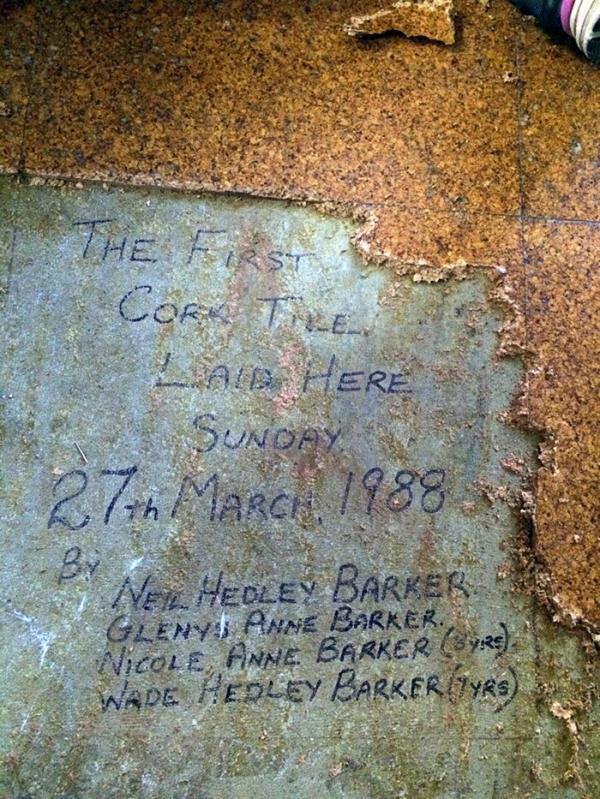 THE FIRST
CORK TILE.
LAID HERE
SUNDAY,
27th MARCH, 1988
BY
NEIL HEDLEY BARKER.
GLENYS ANNE BARKER.
NICOLE ANNE BARKER
WADE HEDLEY BARKER (7YRS)